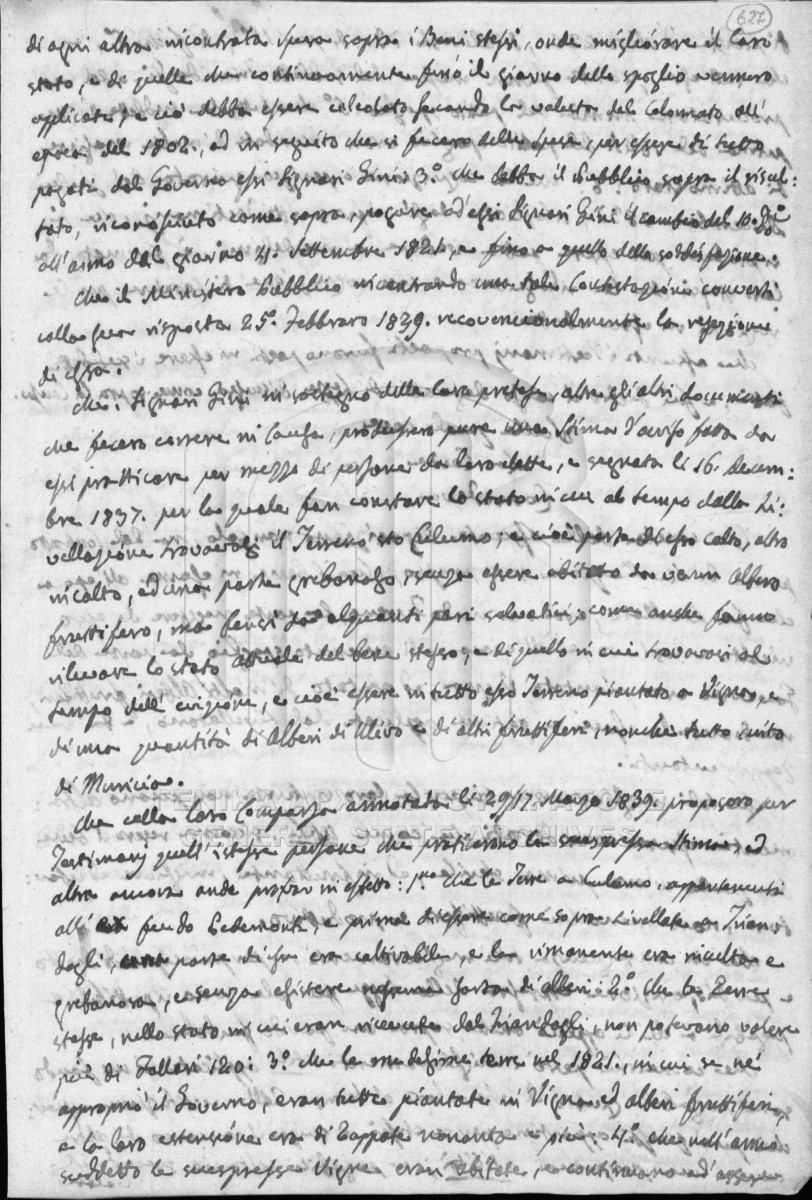 627
di ogni altra incontrata spesa sopra i Beni stessi, onde migliorare il loro
stato, e di quelle che continuamente fino il giorno dello spoglio vennero
applicate, e ciò debba essere calcolato facendo la valuta del Colonnato all'
epoca del 1802., ed in seguito che si fecero delle spese, per essere di tutto
pagati dal Governo essi Signori Zini: 3.° che debba il Pubblico sopra il risul:
tato, riconosciuto come sopra, pagare ad essi Signori Zini il cambio del 10. p%
all'anno dal giorno 21. Settembre 1821., e fino a quello della soddisfazione.
Che il Ministero Pubblico incontrando una tale Contestazione convertì
colla sua risposta 25.° Febbraro 1839. recovencionalmente la rejezione
di essa.
Che i Signori Zini in sostegno delle loro pretese, oltre gli altri documenti
che fecero correre in Causa, produssero pure una Stima d'avviso fatta da
essi pratticare per mezzo di persone da loro elette, e segnata li 16. Decem:
bre 1837. per la quale fan constare lo stato in cui al tempo della Li:
vellazione trovavasi il Terreno sto Culumo; e cioè parte di esso colto, altro
incolto, ed una parte grebanoso, senza essere abitato da verun Albero
fruttifero, ma bensì da alquanti peri salvatici; come anche fanno
rilevare lo stato attuale del bene stesso, e di quello in cui trovavasi al
tempo dell' evizione, e cioè essere in tutto esso Terreno piantato a Vigna, e
di una quantità di Alberi di Ulivo e di altri fruttiferi, nonchè tutto cinto
di Muricia.
Che colla loro Comparsa annotata li 29/17. Marzo 1839. proposero per
Testimonj quell' istesse persone che praticarono la suespressa Stima, ed
altra ancora onde provar in effetto: 1.mo che le Terre a Culumo, appartenenti
all' ex feudo Pedemonte, e prima di essere come sopra livellate a Trian:
dogli, una parte di essa era coltivabile, e la rimanente era incolta e
grebanosa, e senza esistere nessuna sorta di alberi: 2.° che le Terre
stesse, nello stato in cui eran ricevute dal Triandogli, non potevano valere
più di Tallari 120: 3.° che le medesime terre nel 1821., in cui se ne
appropriò il Governo, eran tutte piantate in Vigna ed alberi fruttiferi,
e la loro estensione era di Zappate nonanta e più: 4.° che nell' anno
suddetto le suespresse Vigne eran abitate, e continuano ad essere